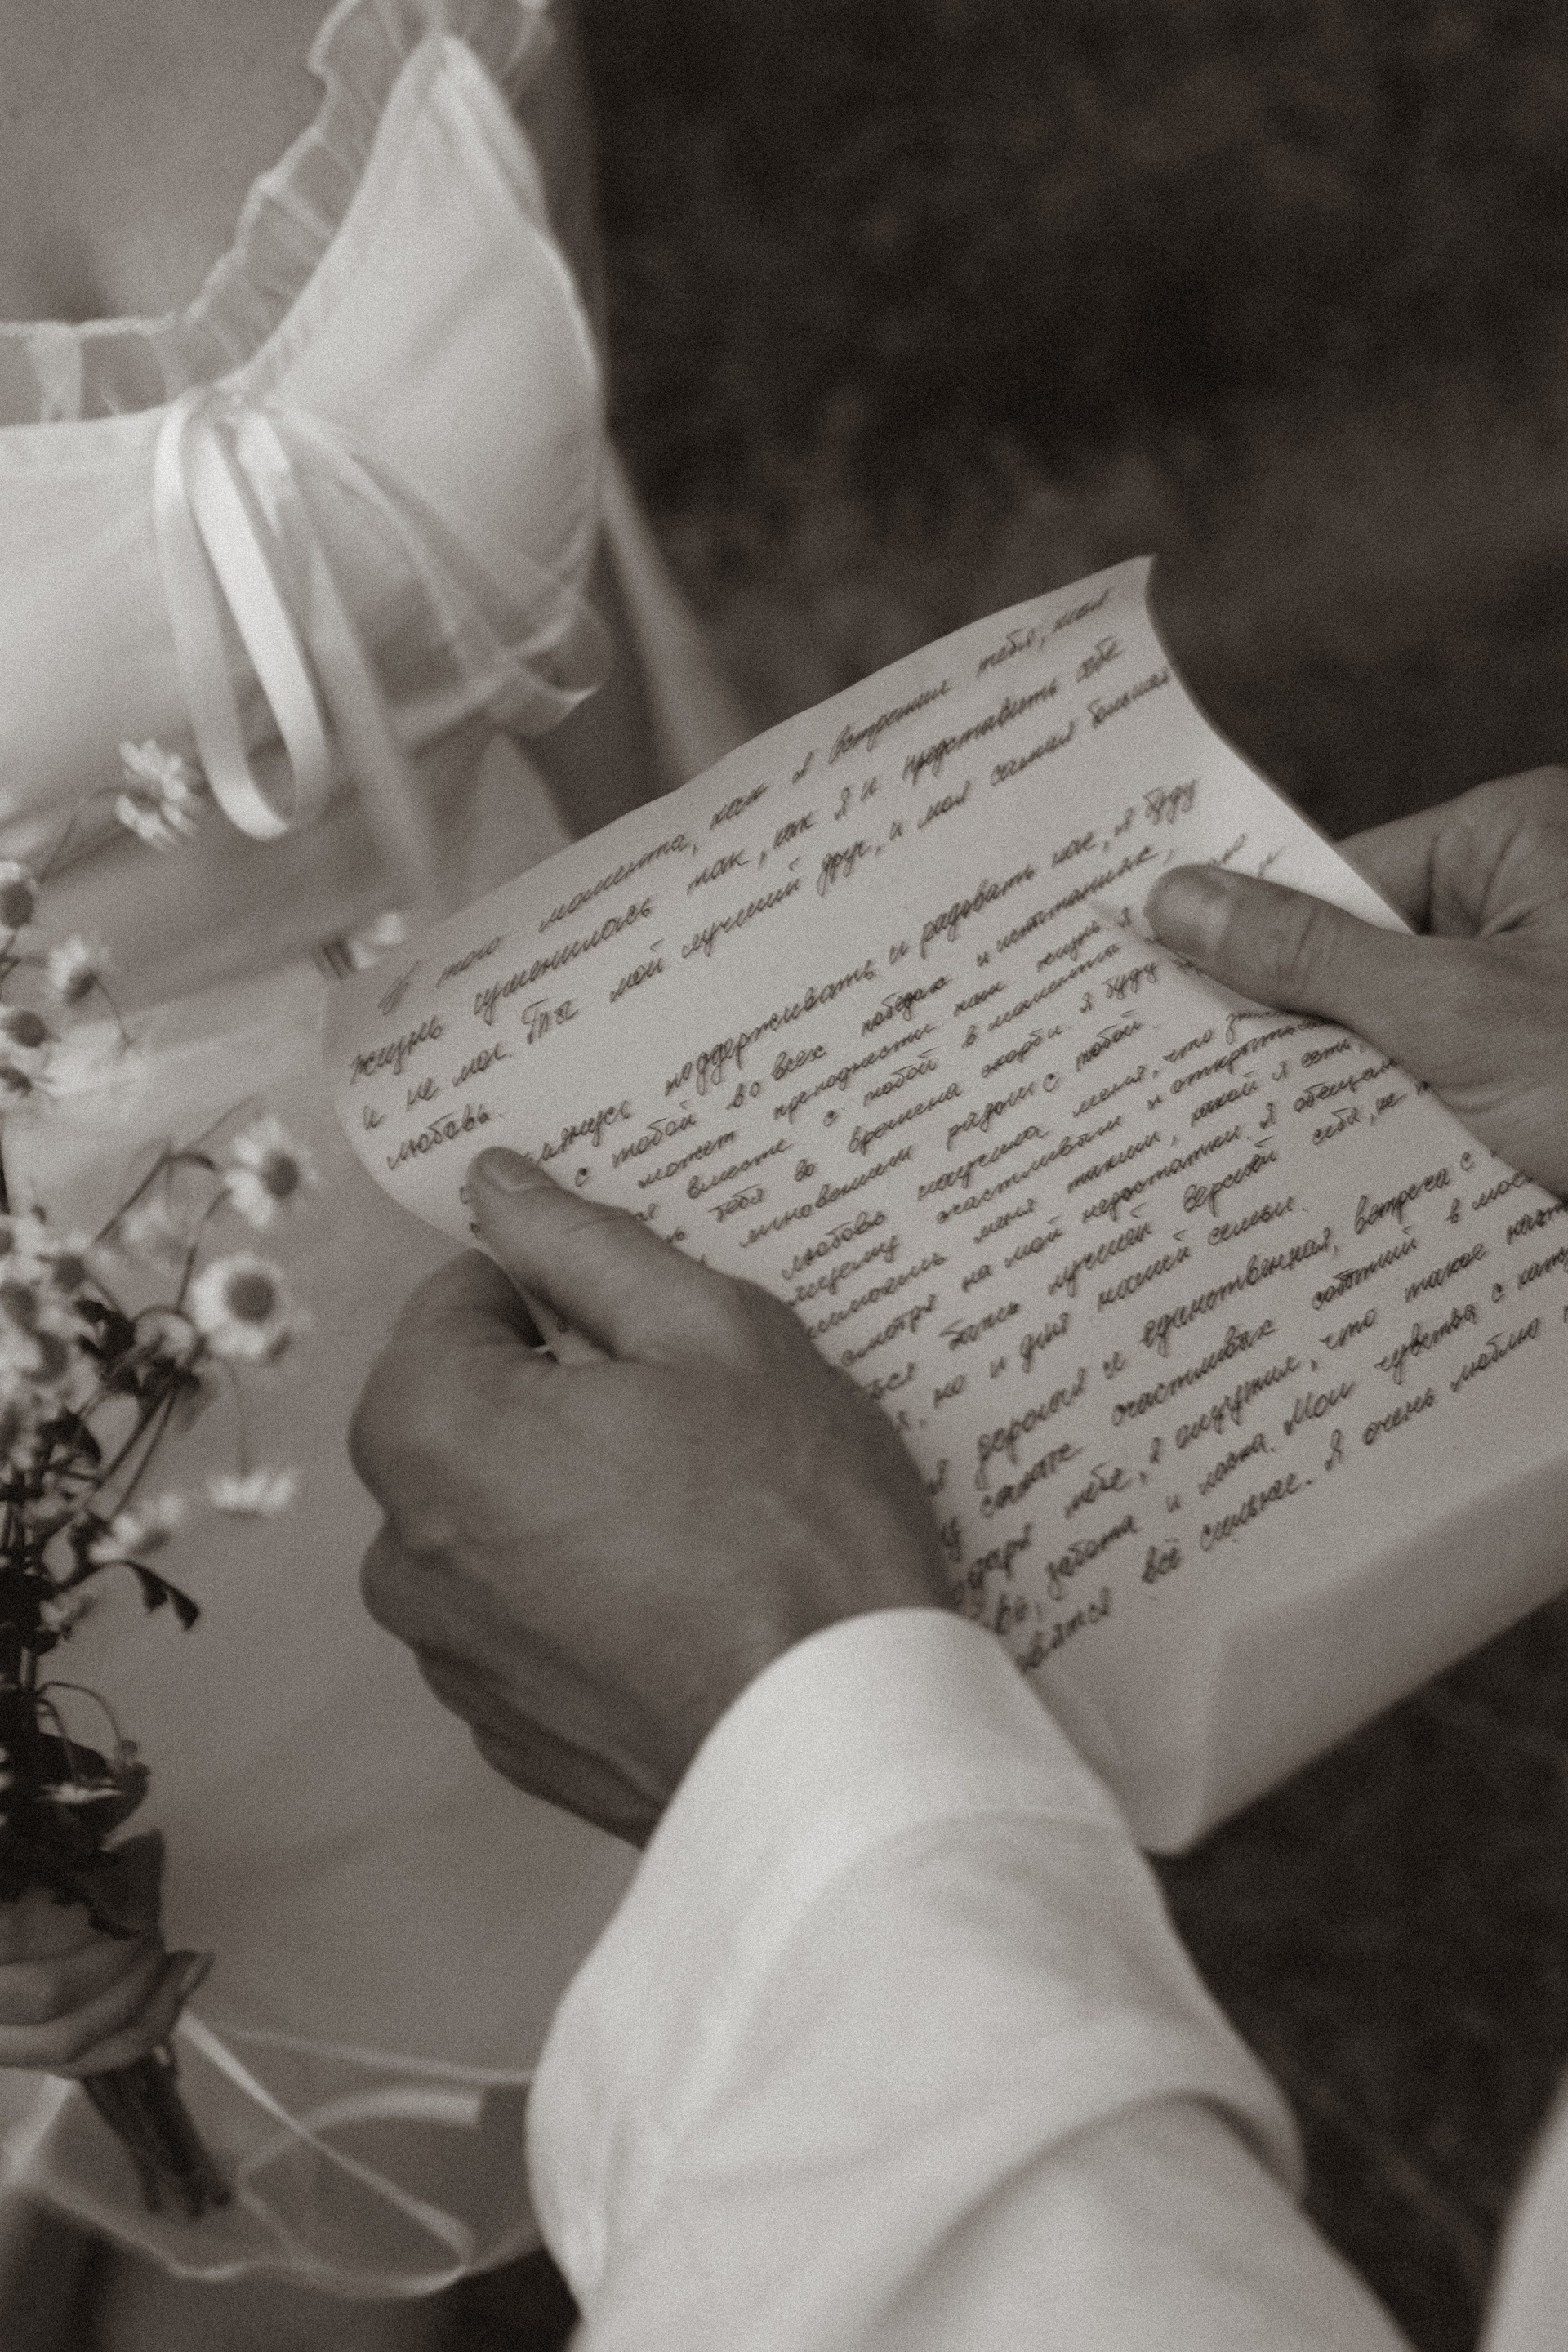 С того момента, как я встретил тебя, моя
жизнь изменилась так, как я и представить себе
и не мог. Ты мой лучший друг, и моя самая большая
любовь.
поддерживать и радовать нас, я буду
с тобой во всех победах и испытаниях,
может преподнести нам жизнь. Я
вместе с тобой в моменты
тебя во времена скорби. Я буду
мгновением рядом с тобой.
любовь научила меня, что
счастливым и открытым
меня таким, какой я есть,
смотря на мои недостатки. Я обещаю
быть лучшей версией себя, не
но и для нашей семьи.
дорогая и единственная, встреча с
самых счастливых событий в моей
тебе, я ощутил, что такое
забота и ласка. Мои чувства с каждым
всё сильнее. Я очень люблю